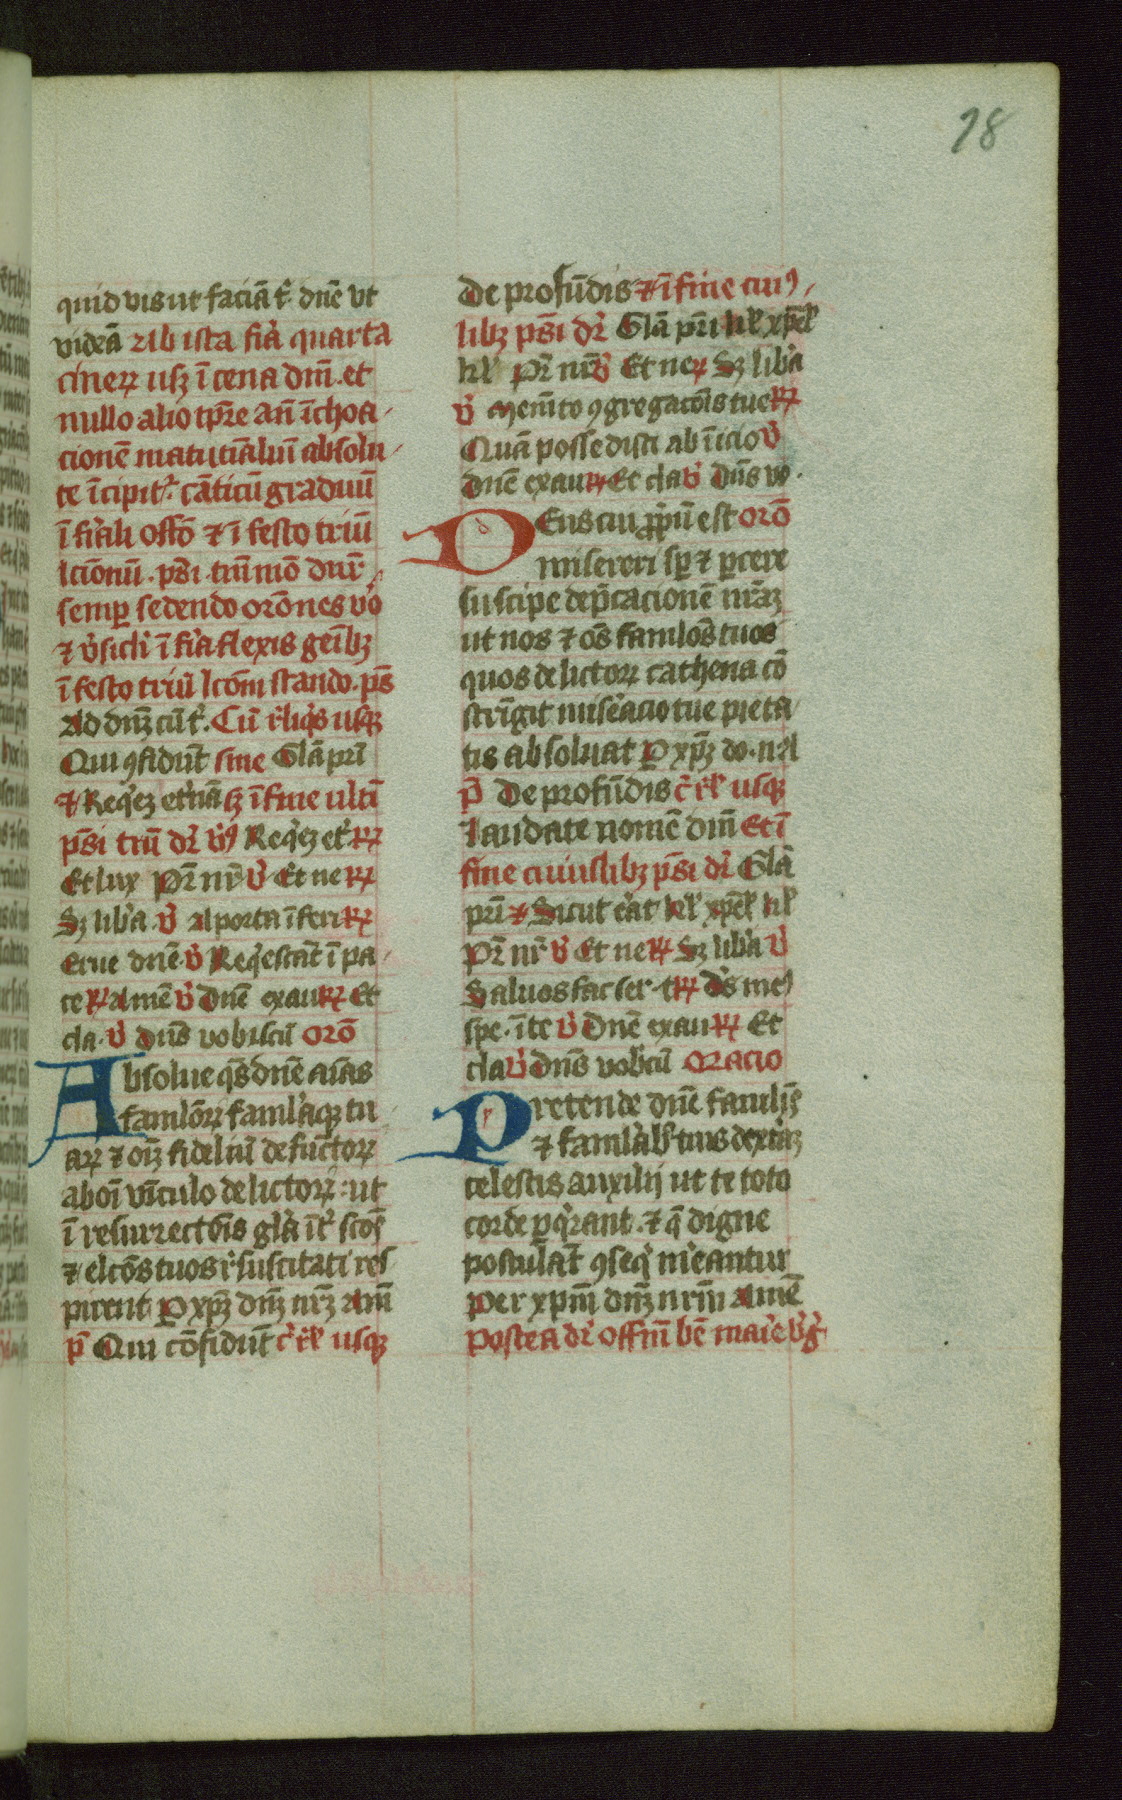 28
quid vis ut faciā t̄ dn̄e ut
videā Ab ista fīa quarta
cineꝝ usꝫ ī cena dn̄i. et
nullo alio tp̄re an̄ īchoa
cionē matutīaluī absolu
te īcipit᷑ cāticū graduū
ī fīali offō ⁊ ī festo triū
lcionū. psī. trū mō dnr̄
semp sedendo orōnes vō
⁊ v̄sicli ī fīa flexis geībꝫ
ī festo triū lcōm stando. ps̄
Ad dn̄ꝫ cū t̄. Cū rl̄iqs usqꝫ
Qui ꝯfidūt sine Glā pri
⁊ Reqēꝫ et̄nā sꝫ ī fine ulti
psī triū dr̄ v̄ꝰ Reqēꝫ et̄ ℟
Et lux Pr̄ nr̄ v̄ Et ne ℟
Sꝫ lib̄a v̄ A porta īferi ℟
Erue dn̄e v̄ Reqēscāt ī pa
ce ℟ Amē v̄ Dn̄e exau ℟ Et
cla. v̄ Dn̄s vobiscū Orō
Absolue qs̄ dn̄e aīas
famloꝝ famlaꝝqꝫ tu
aꝝ ⁊ oīꝫ fideliū defūctoꝝ
ab oī vīculo delictoꝝ: ut
ī resurrectōis glā īt̄ sctōs
⁊ elcōs tuos r̄suscitati res
pirent P xp̄ꝫ dn̄ꝫ nr̄ꝫ Am̄
p̄ Qui cōfidūt c̄ rl̄ usqꝫ
De profūdis ⁊ ī fine cuiꝰ
libꝫ psī dr̄ Glā pri kl̄ xp̄el̄
kl̄ Pr̄ nr̄ v̄ Et ne ℟ Sꝫ lib̄a
v̄ Memēto ꝯgregacōis tue ℟
Quā possedisti ab īicio v̄
Dn̄e exau ℟ Et cla v̄ Dn̄s vo.
Deus cui ꝓpriū est Orō
misereri sp̄ ⁊ ꝑcere
suscipe dep̄cacionē nr̄aꝫ
ut nos ⁊ oēs famlos tuos
quos delictoꝝ cathena cō
strīgit mis̄eacio tue pieta
tis absoluat P xp̄ꝫ do. nr̄
p̄ De profūdis c̄ rl̄ usqꝫ
Laudate nomē dn̄i Et ī
fine cuiuslibꝫ psī dr̄ Glā
pri ⁊ Sicut er̄at kl̄ xp̄el̄ kl̄
Pr̄ nr̄ v̄ Et ne ℟ Sꝫ lib̄a v̄
Saluos fac ser. t ℟ Ds̄ meꝰ
spe. ī te v̄ Dn̄e exau ℟ Et
cla v̄ Dn̄s vobcū Oracio
Pretende dn̄e famulis
⁊ famlabꝫ tuis dext̄aꝫ
celestis auxilij ut te toto
corde pq̄rant. ⁊ q̄ digne
postulāt ꝯseq̄ m̄eantur
Per xpm̄ dn̄ꝫ nrm̄ Amē
Postea dr̄ offm̄ bē marie v̄ḡ